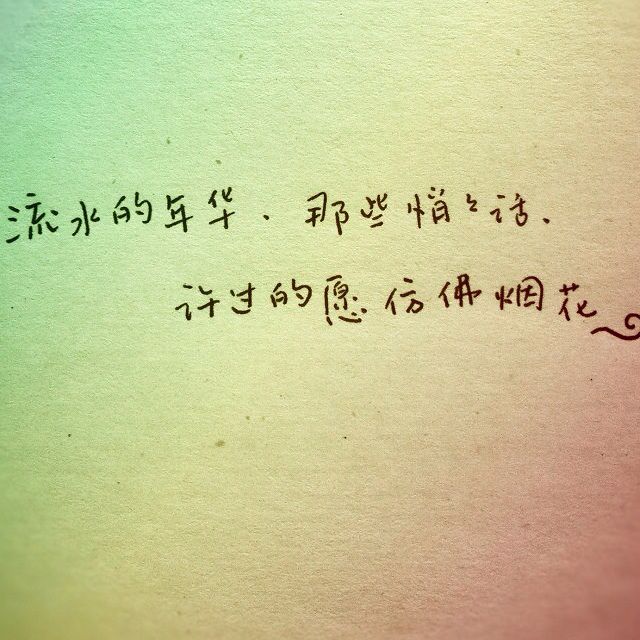 流水的年华、那些悄々话、
许过的愿仿佛烟花